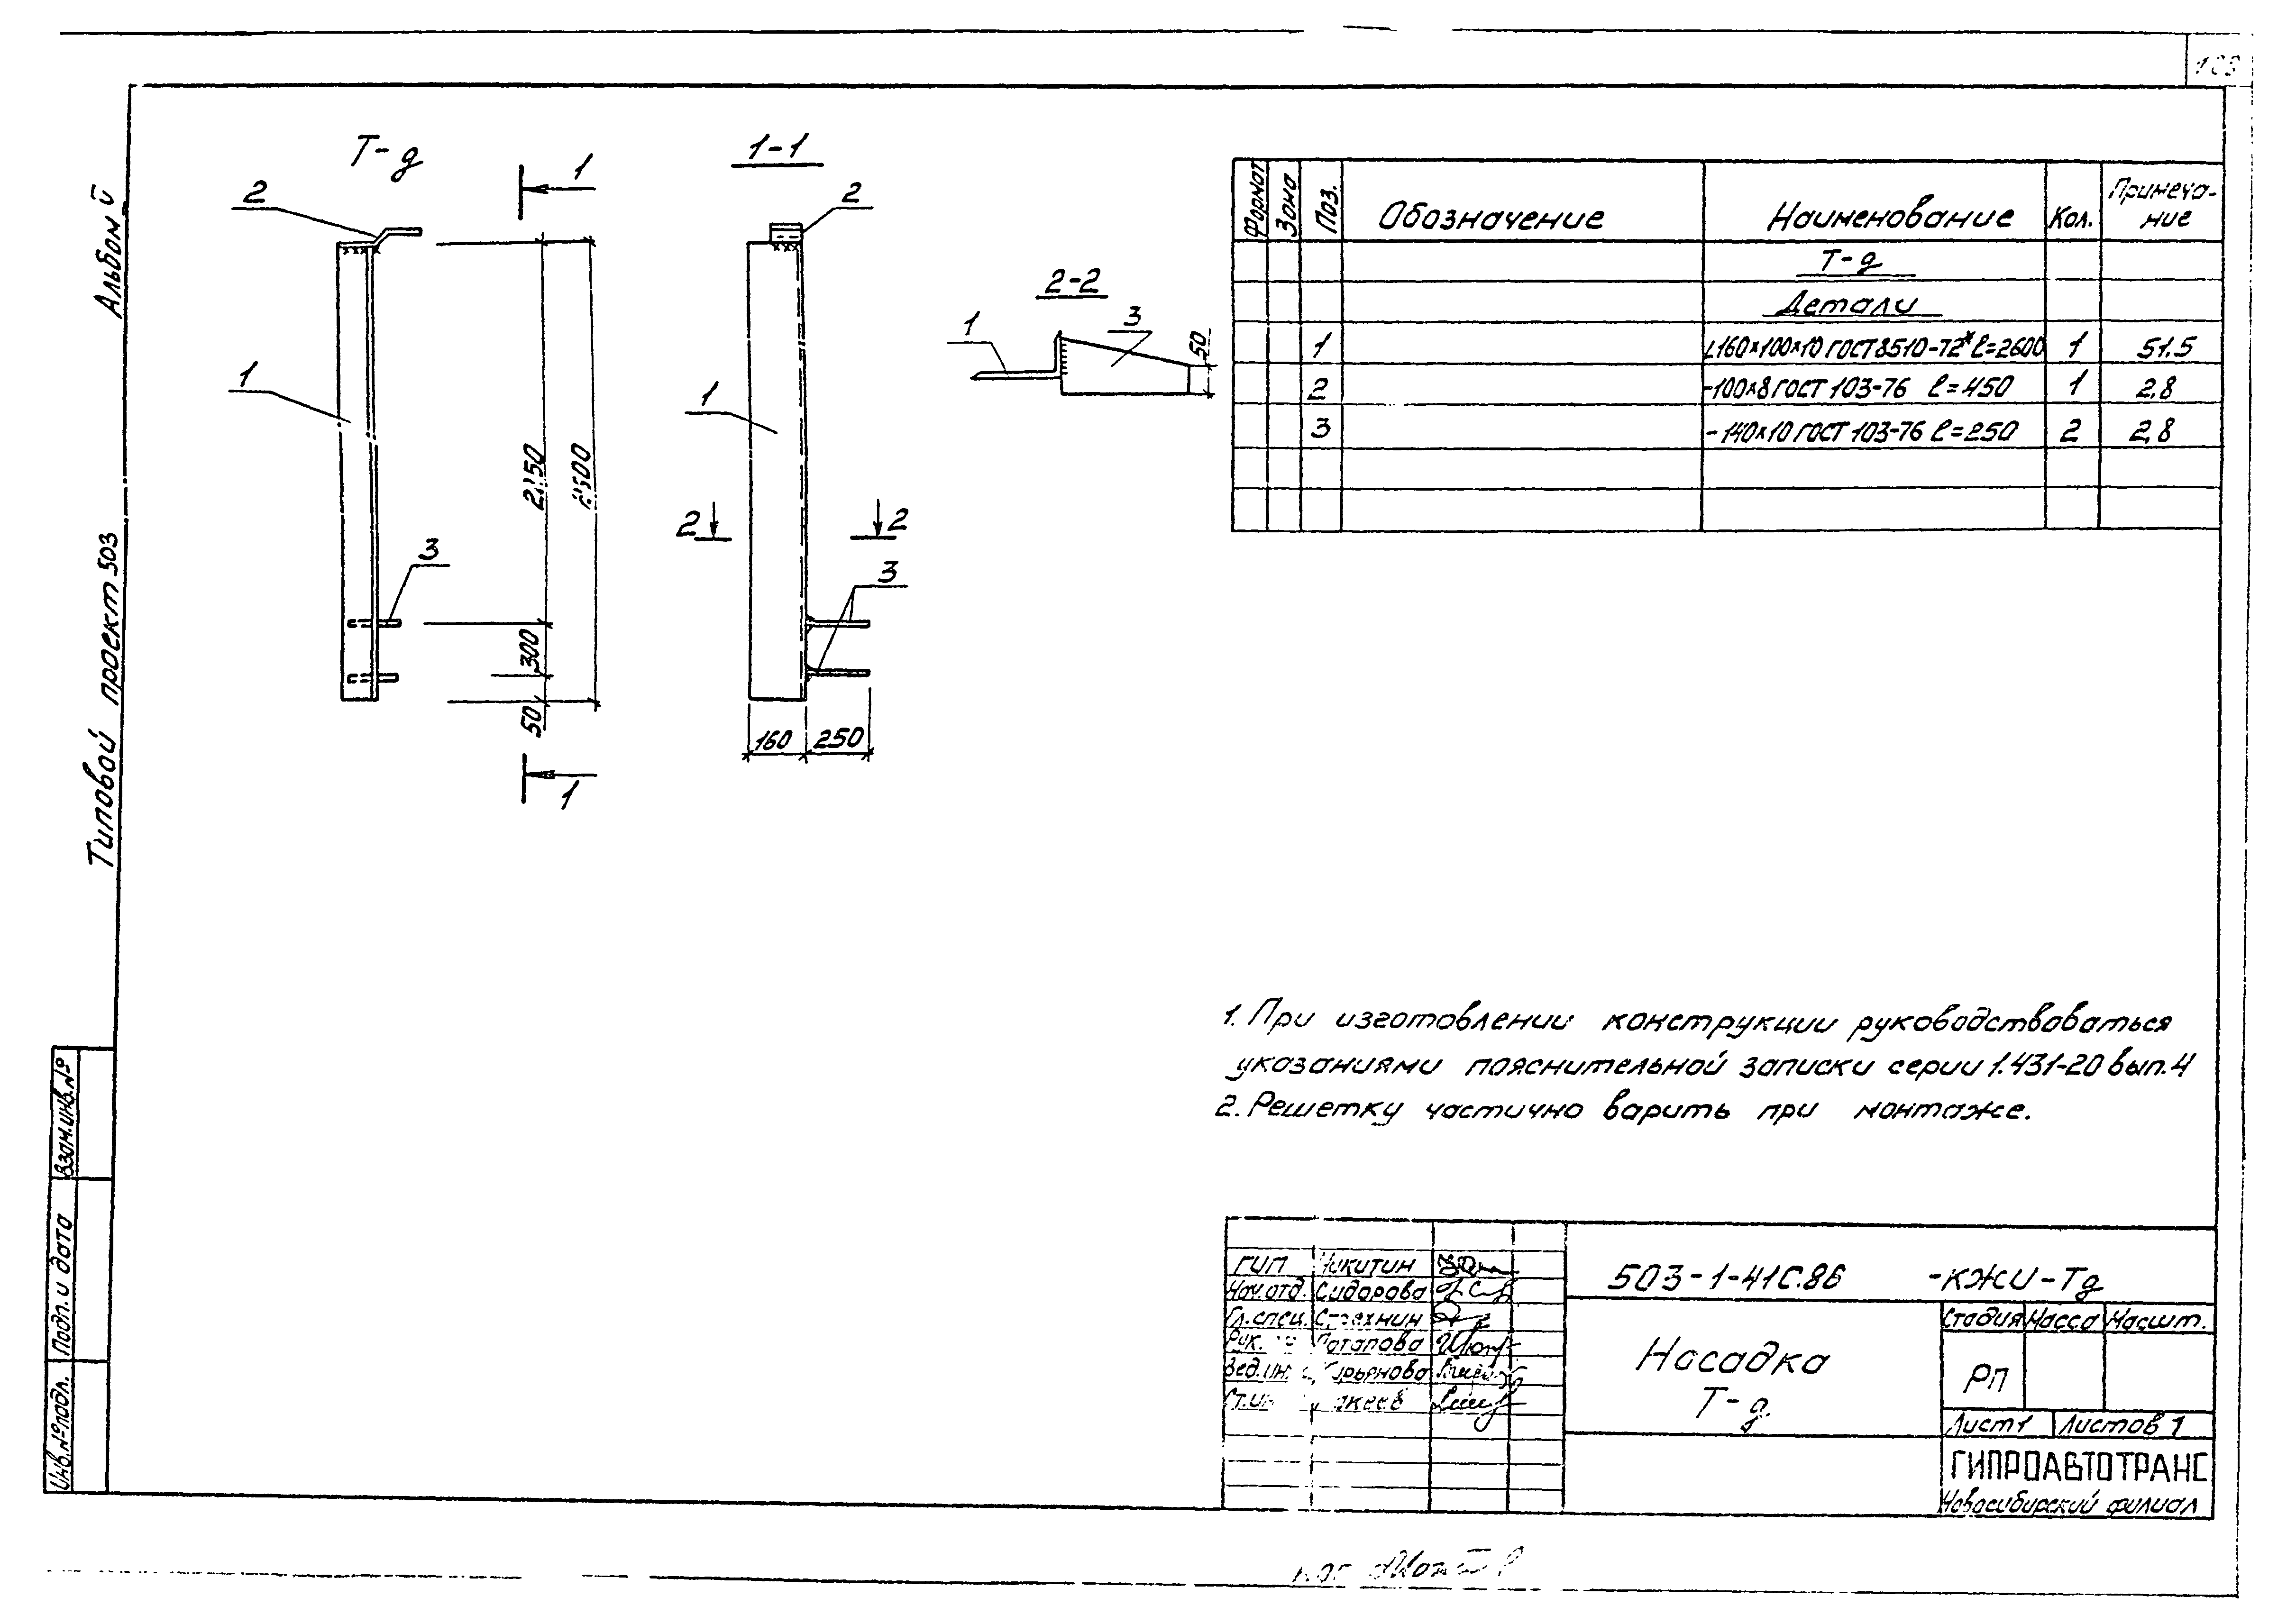 103
Альбом V
Типовой проект 503
Т-д
2
1
3
1
1
2150
2600
300
50
1-1
2
1
2
2
3
160
250
2-2
1
3
50
Формат Зона Поз. Обозначение Наименование Кол. Примеча-
ние
Т-д
Детали
1 L160×100×10 ГОСТ 8510-72* ℓ=2600 1 51.5
2 -100×8 ГОСТ 103-76 ℓ=450 1 2,8
3 -140×10 ГОСТ 103-76 ℓ=250 2 2,8
1. При изготовлении конструкции руководстваваться
указаниями пояснительной записки серии 1.431-20 вып.4
2. Решетку частично варить при монтаже.
Взам.инв.№
Подп. и дата
Инв.№подл.
ГИП Никитин
Нач.отд. Сидорова
Гл.спец.
Рук. Потапова
Вед.ин. Кирьянова
Ст.ин
503-1-41С.86 -КЖИ-Тд
Насадка
Т-д
Стадия Масса Масшт.
РП
Лист 1 Листов 1
ГИПРОАВТОТРАНС
Новосибирский филиал